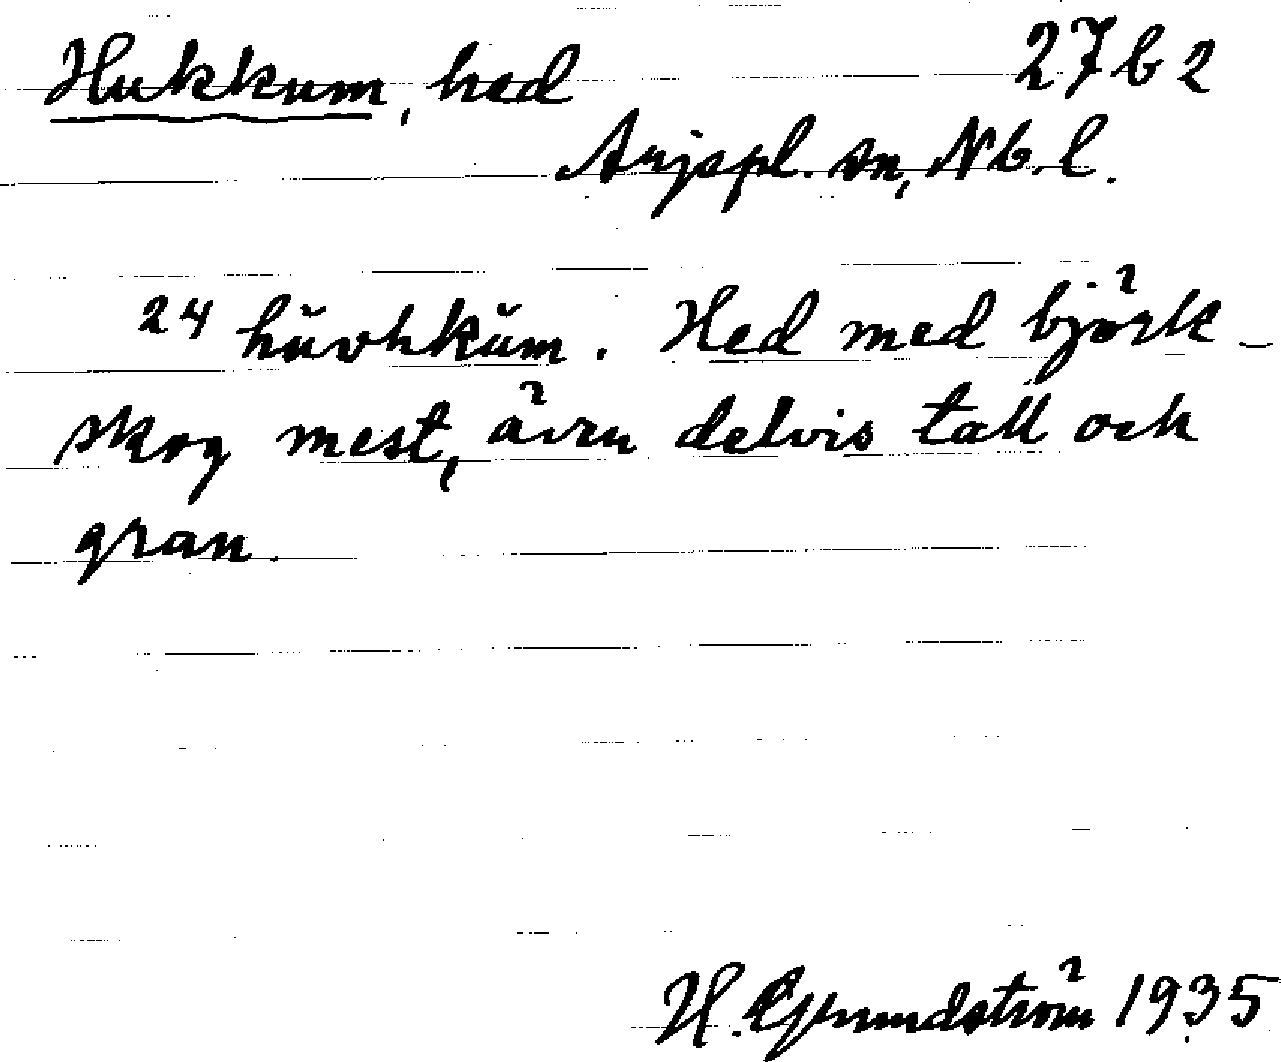 Hukkum, hed 27 b 2
Arjepl. sn, Nb. l.
24 hŭvhkŭm. Hed med björk-
skog mest, även delvis tall och
gran.
H. Grundström 1935